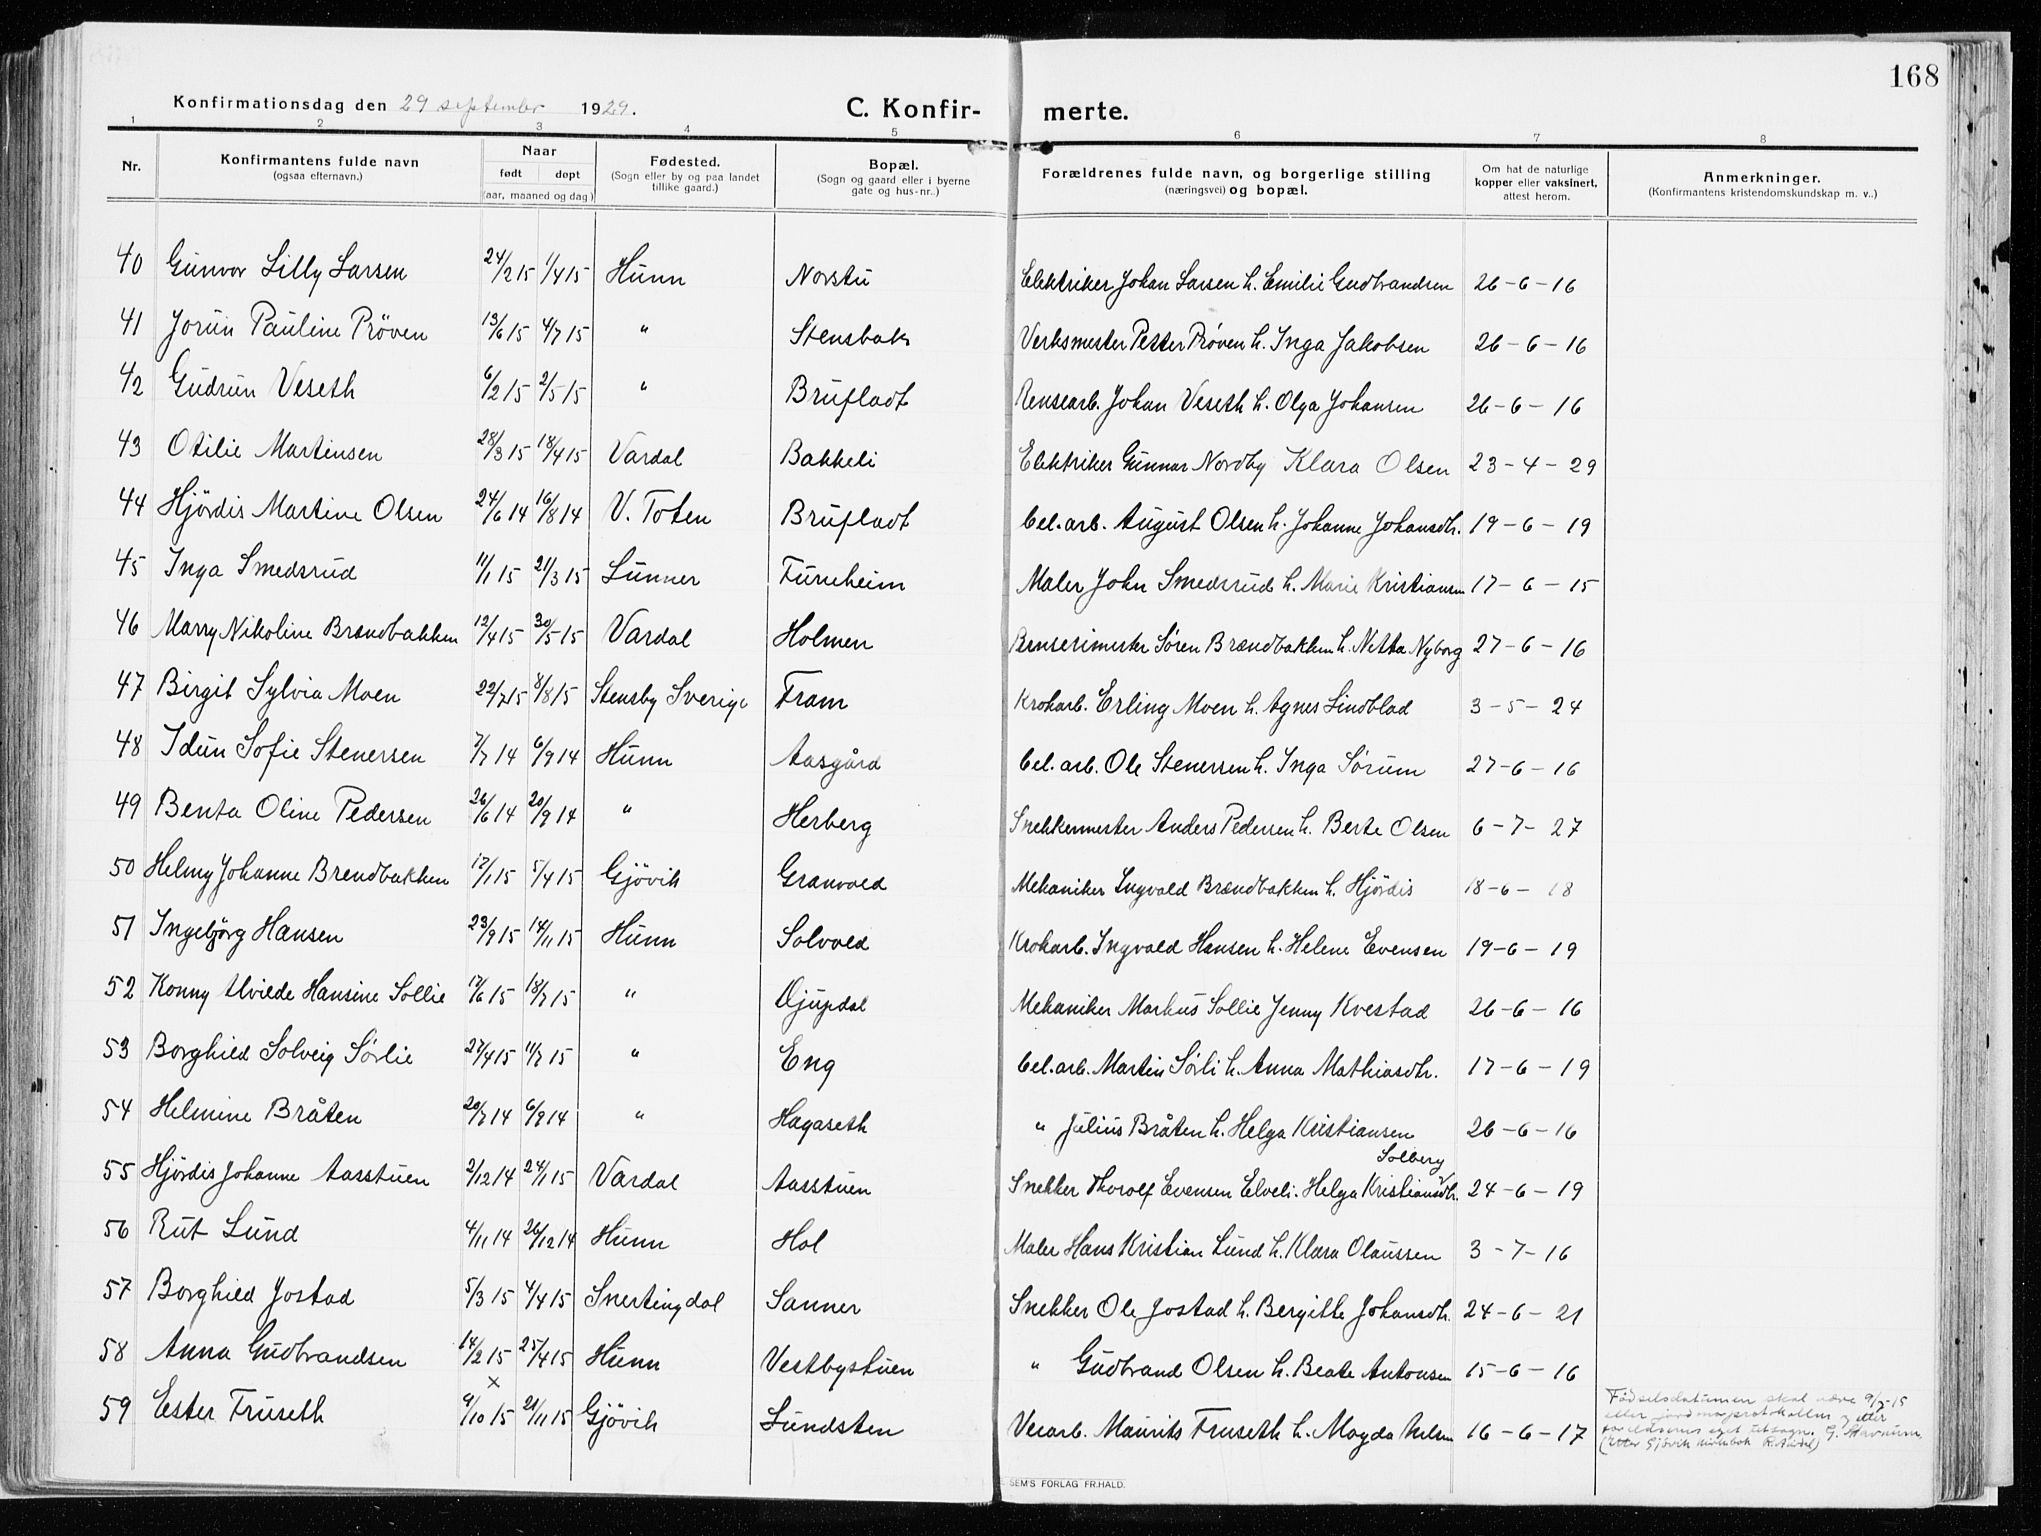 168
Konfirmationsdag den 29 september 1929. C. Konfir- merte.
1 2 3 4 5 6 7 8
Nr. Konfirmantens fulde navn (ogsaa efternavn.) Naar født døpt (aar, maaned og dag) Fødested. (Sogn eller by og paa landet tillike gaard.) Bopæl. (Sogn og gaard eller i byerne gate og hus-nr..) Forældrenes fulde navn, og borgerlige stilling (næringsvei) og bopæl. Om hat de naturlige kopper eller vaksinert, attest herom. Anmerkninger. (Konfirmantens kristendomskundskap m. v..)
40 Gunvor Lilly Larsen 24/2 15 1/4 15 Hunn Norstu Elektriker Johan Larsen h. Emilie Gudbrandsen 26-6-16
41 Jorun Pauline Pröven 13/6 15 4/7 15 " Stensbak Verksmester Petter Pröven h. Inga Jakobsen 26-6-16
42 Gudrun Veseth 6/2 15 2/5 15 " Brufladt Rensearb. Johan Veseth h. Olga Johansen 26-6-16
43 Otilie Martinsen 28/3 15 18/4 15 Vardal Bakkeli Elektriker Gunnar Nordby Klara Olsen 23-4-29
44 Hjördis Martine Olsen 24/6 14 16/8 14 V. Toten Brufladt Cel. arb. August Olsen h. Johanne Johansdtr. 19-6-19
45 Inga Smedsrud 11/1 15 21/3 15 Lunner Furuheim Maler John Smedsrud h. Marie Kristiansen 17-6-15
46 Marry Nikoline Brændbakken 12/4 15 30/5 15 Vardal Holmen Renserimester Sören Brændbakken h. Netta Nyborg 27-6-16
47 Birgit Sylvia Moen 22/2 15 8/8 15 Stensby Sverige Fram Krokarb. Erling Moen h. Agnes Lindblad 3-5-24
48 Idun Sofie Stenersen 7/7 14 6/9 14 Hunn Aasgård Cel. arb. Ole Stenersen h. Inga Sörum 27-6-16
49 Benta Oline Pedersen 26/6 14 20/9 14 " Herberg Snekkermester Anders Pedersen h. Berte Olsen 6-7-27
50 Helmy Johanne Brendbakken 17/1 15 5/4 15 Gjövik Granvold Mekaniker Ingvald Brændbakken h. Hjördis 18-6-18
51 Ingebjörg Hansen 23/9 15 14/11 15 Hunn Solvold Krokarb. Ingvald Hansen h. Helene Evensen 19-6-19
52 Konny Alvilde Hansine Sollie 17/6 15 18/7 15 " Djupdal Mekaniker Markus Sollie Jenny Kvestad 26-6-16
53 Borghild Solveig Sörlie 27/4 15 11/7 15 " Eng Cel. arb. Martin Sörli h. Anna Mathiasdtr. 17-6-19
54 Helmine Bråten 20/7 14 6/9 14 " Hagaseth " Julius Bråten h. Helga Kristiansen 26-6-16
Solberg
55 Hjördis Johanne Aasstuen 2/12 14 24/1 15 Vardal Aasstuen Snekker Thorolf Evensen Elveli. Helga Kristiansdtr. 24-6-19
56 Rut Lund 4/11 14 26/12 14 Hunn Hol Maler Hans Kristian Lund h. Klara Olaussen 3-7-16
57 Borghild Jostad 5/3 15 4/4 15 Snertingdal Sanner Snekker Ole Jostad h. Bergitte Johansdtr. 24-6-21
58 Anna Gudbrandsen 14/2 15 25/4 15 Hunn Vestbystuen " Gudbrand Olsen h. Beate Antonsen 15-6-16
×
59 Ester Fruseth 9/10 15 21/11 15 Gjövik Lundsten Verarb. Maurits Fruseth h. Magda Nilsen 16-6-17
Födselsdatumen skal være 9/ -15
eller jordmorprotokollen og etter
foreldrenes eget utsagn. G.
(etter Gjövik kirkebok R.
SEM'S FORLAG FR.HALD.